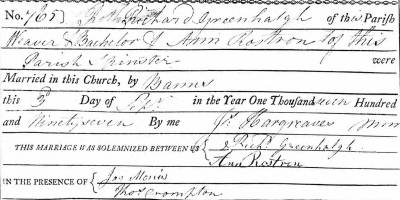 No. 765 } Richard Greenhalgh of this Parish
Weaver & Bachelor & Ann Rostron of this
Parish Spinster were
Married in this Church, by Banns
this 3d Day of in the Year One Thousand seven Hundred
and Ninety seven By me Js. Hargreaves
THIS MARRIAGE WAS SOLEMNIZED BETWEEN US { Richd Greenhalgh
Ann Rostron
IN THE PRESENCE OF { Jas Morris
Thos Crompton